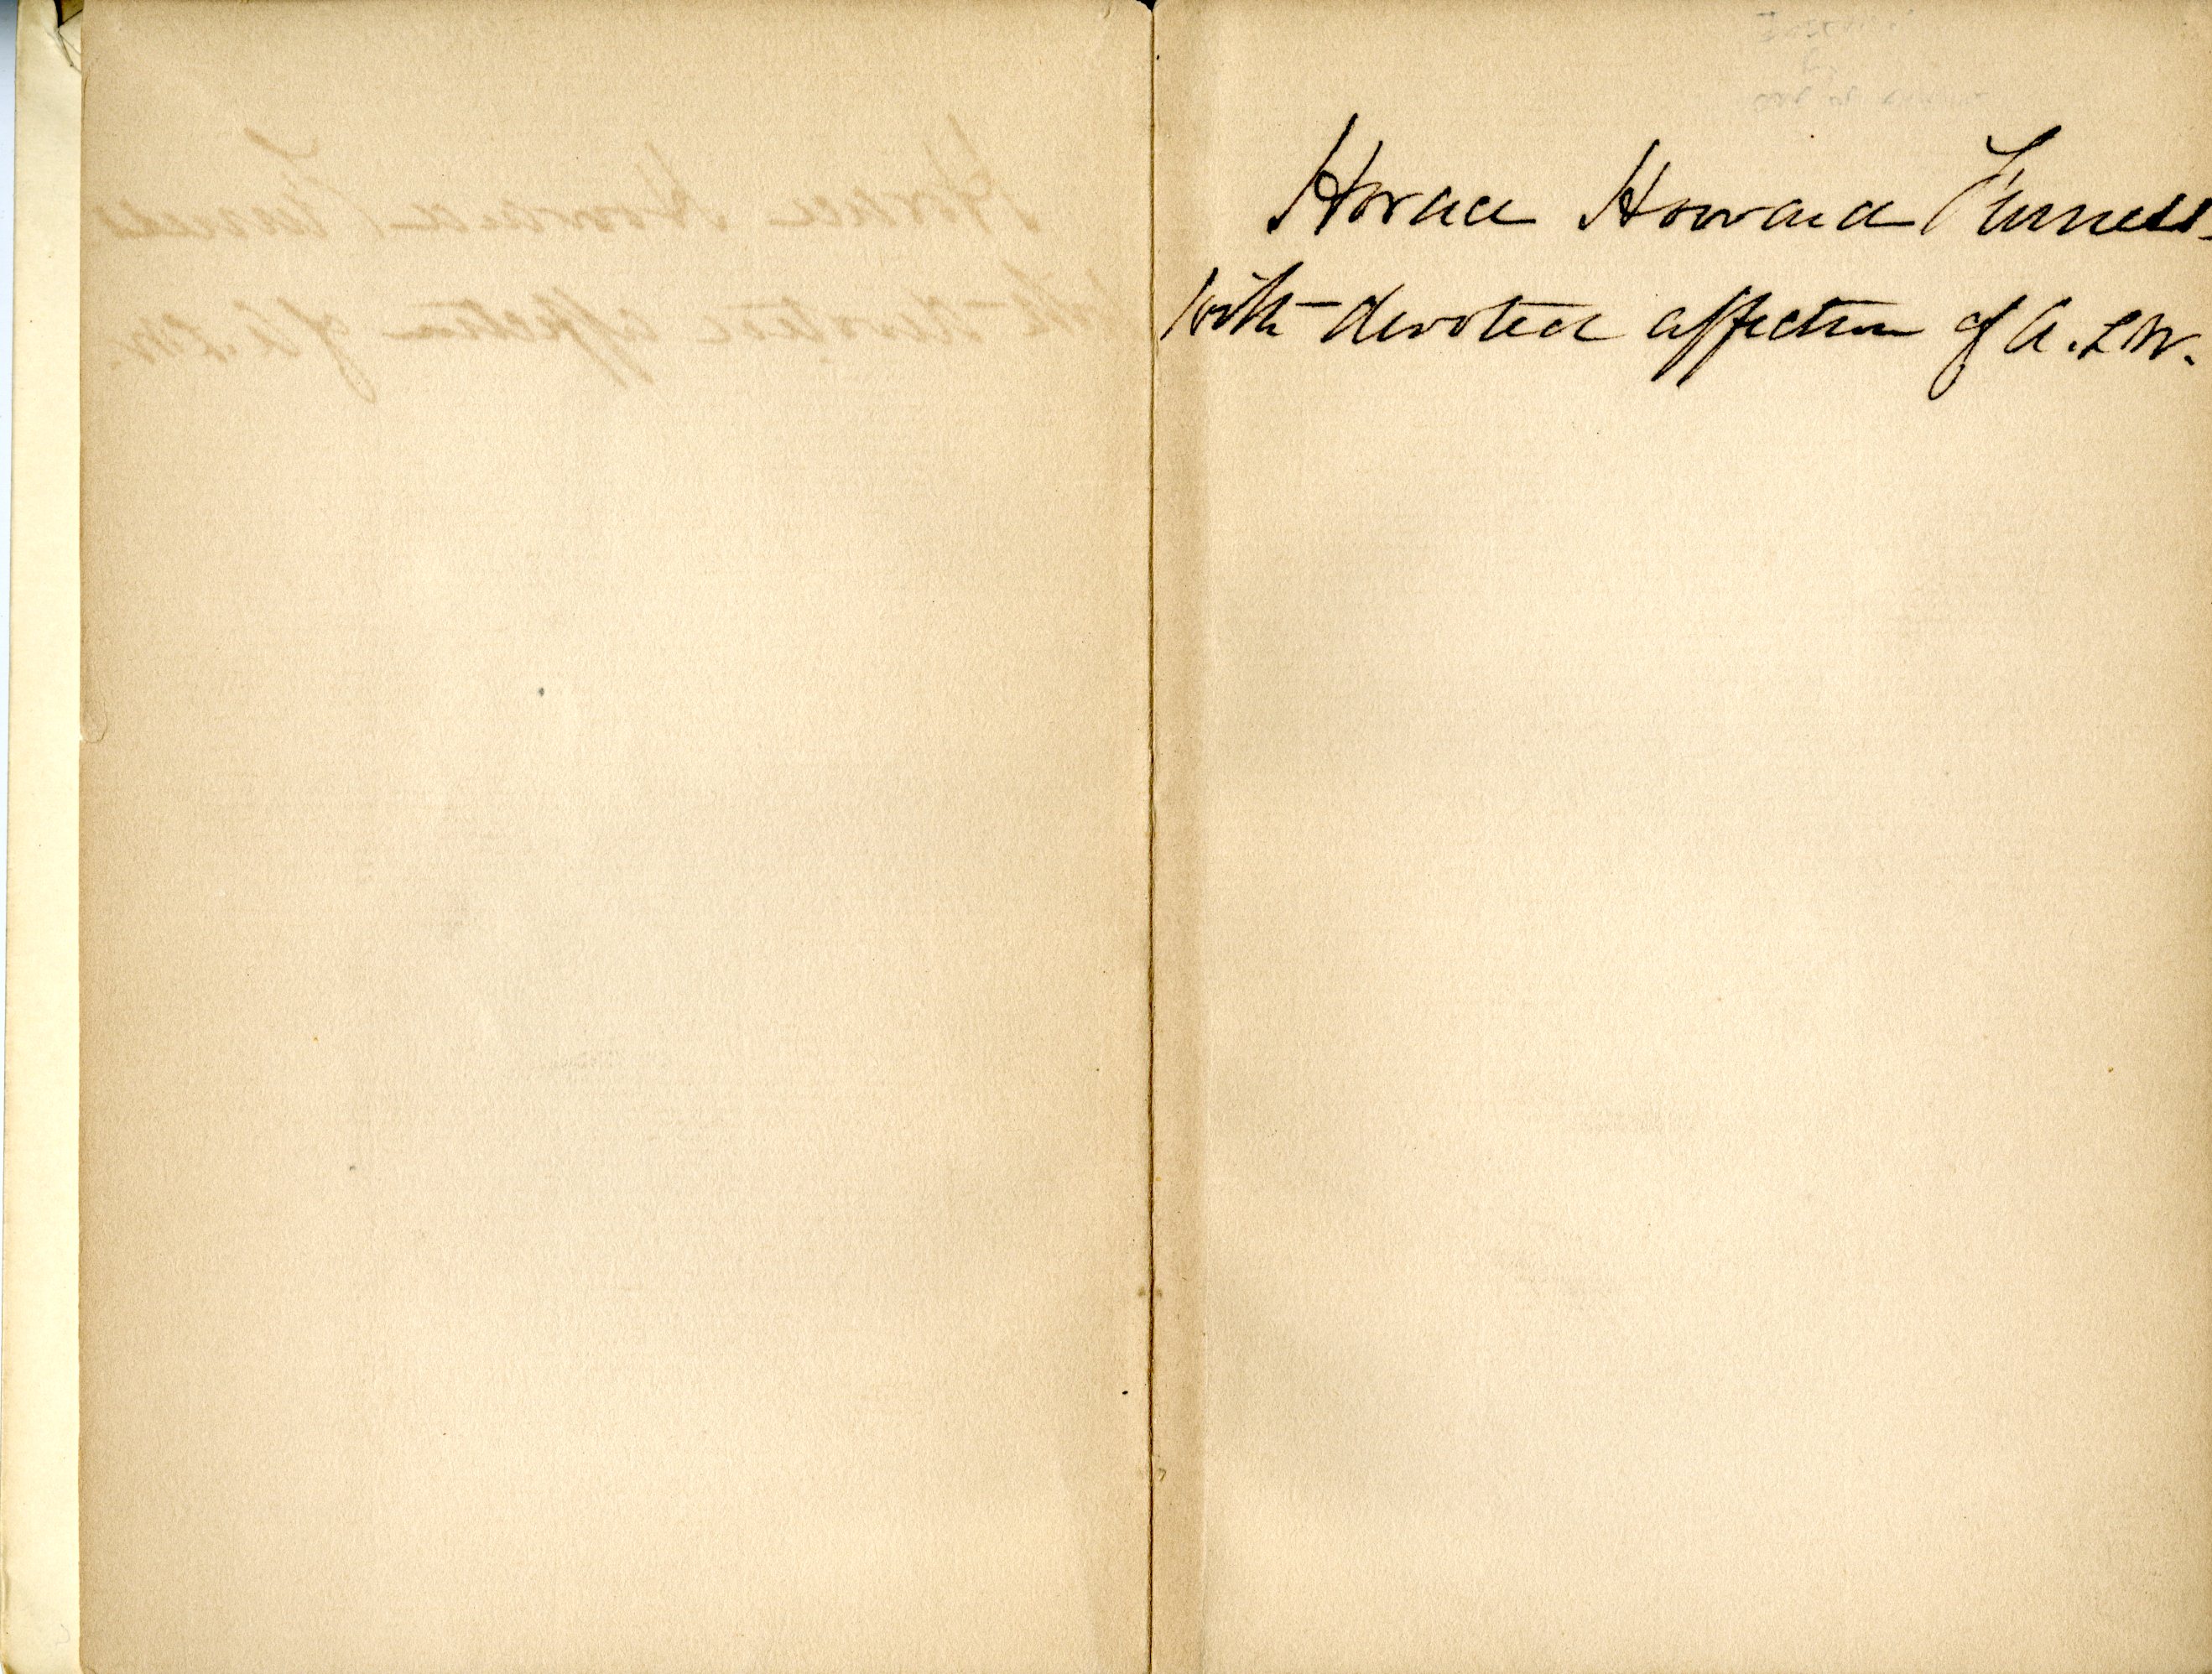 Horace Howard Furness.
with devoted affection of A. L W.